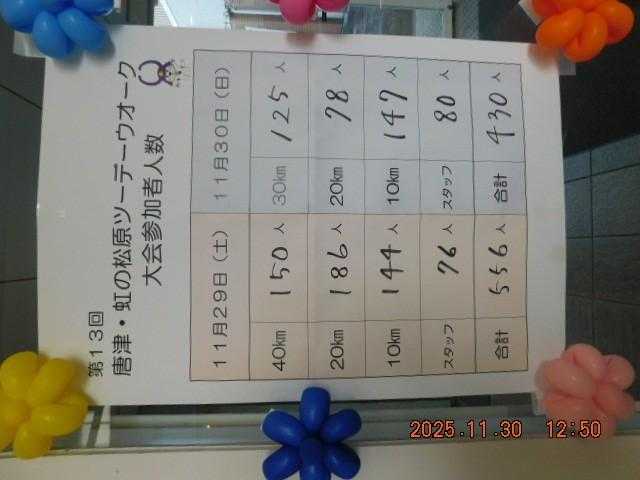 第13回
唐津・虹の松原ツーデーウオーク
大会参加者人数
11月29日（土） 11月30日（日）
40km 150人 30km 125人
20km 186人 20km 78人
10km 144人 10km 147人
スタッフ 76人 スタッフ 80人
合計 556人 合計 430人
2025.11.30 12:50